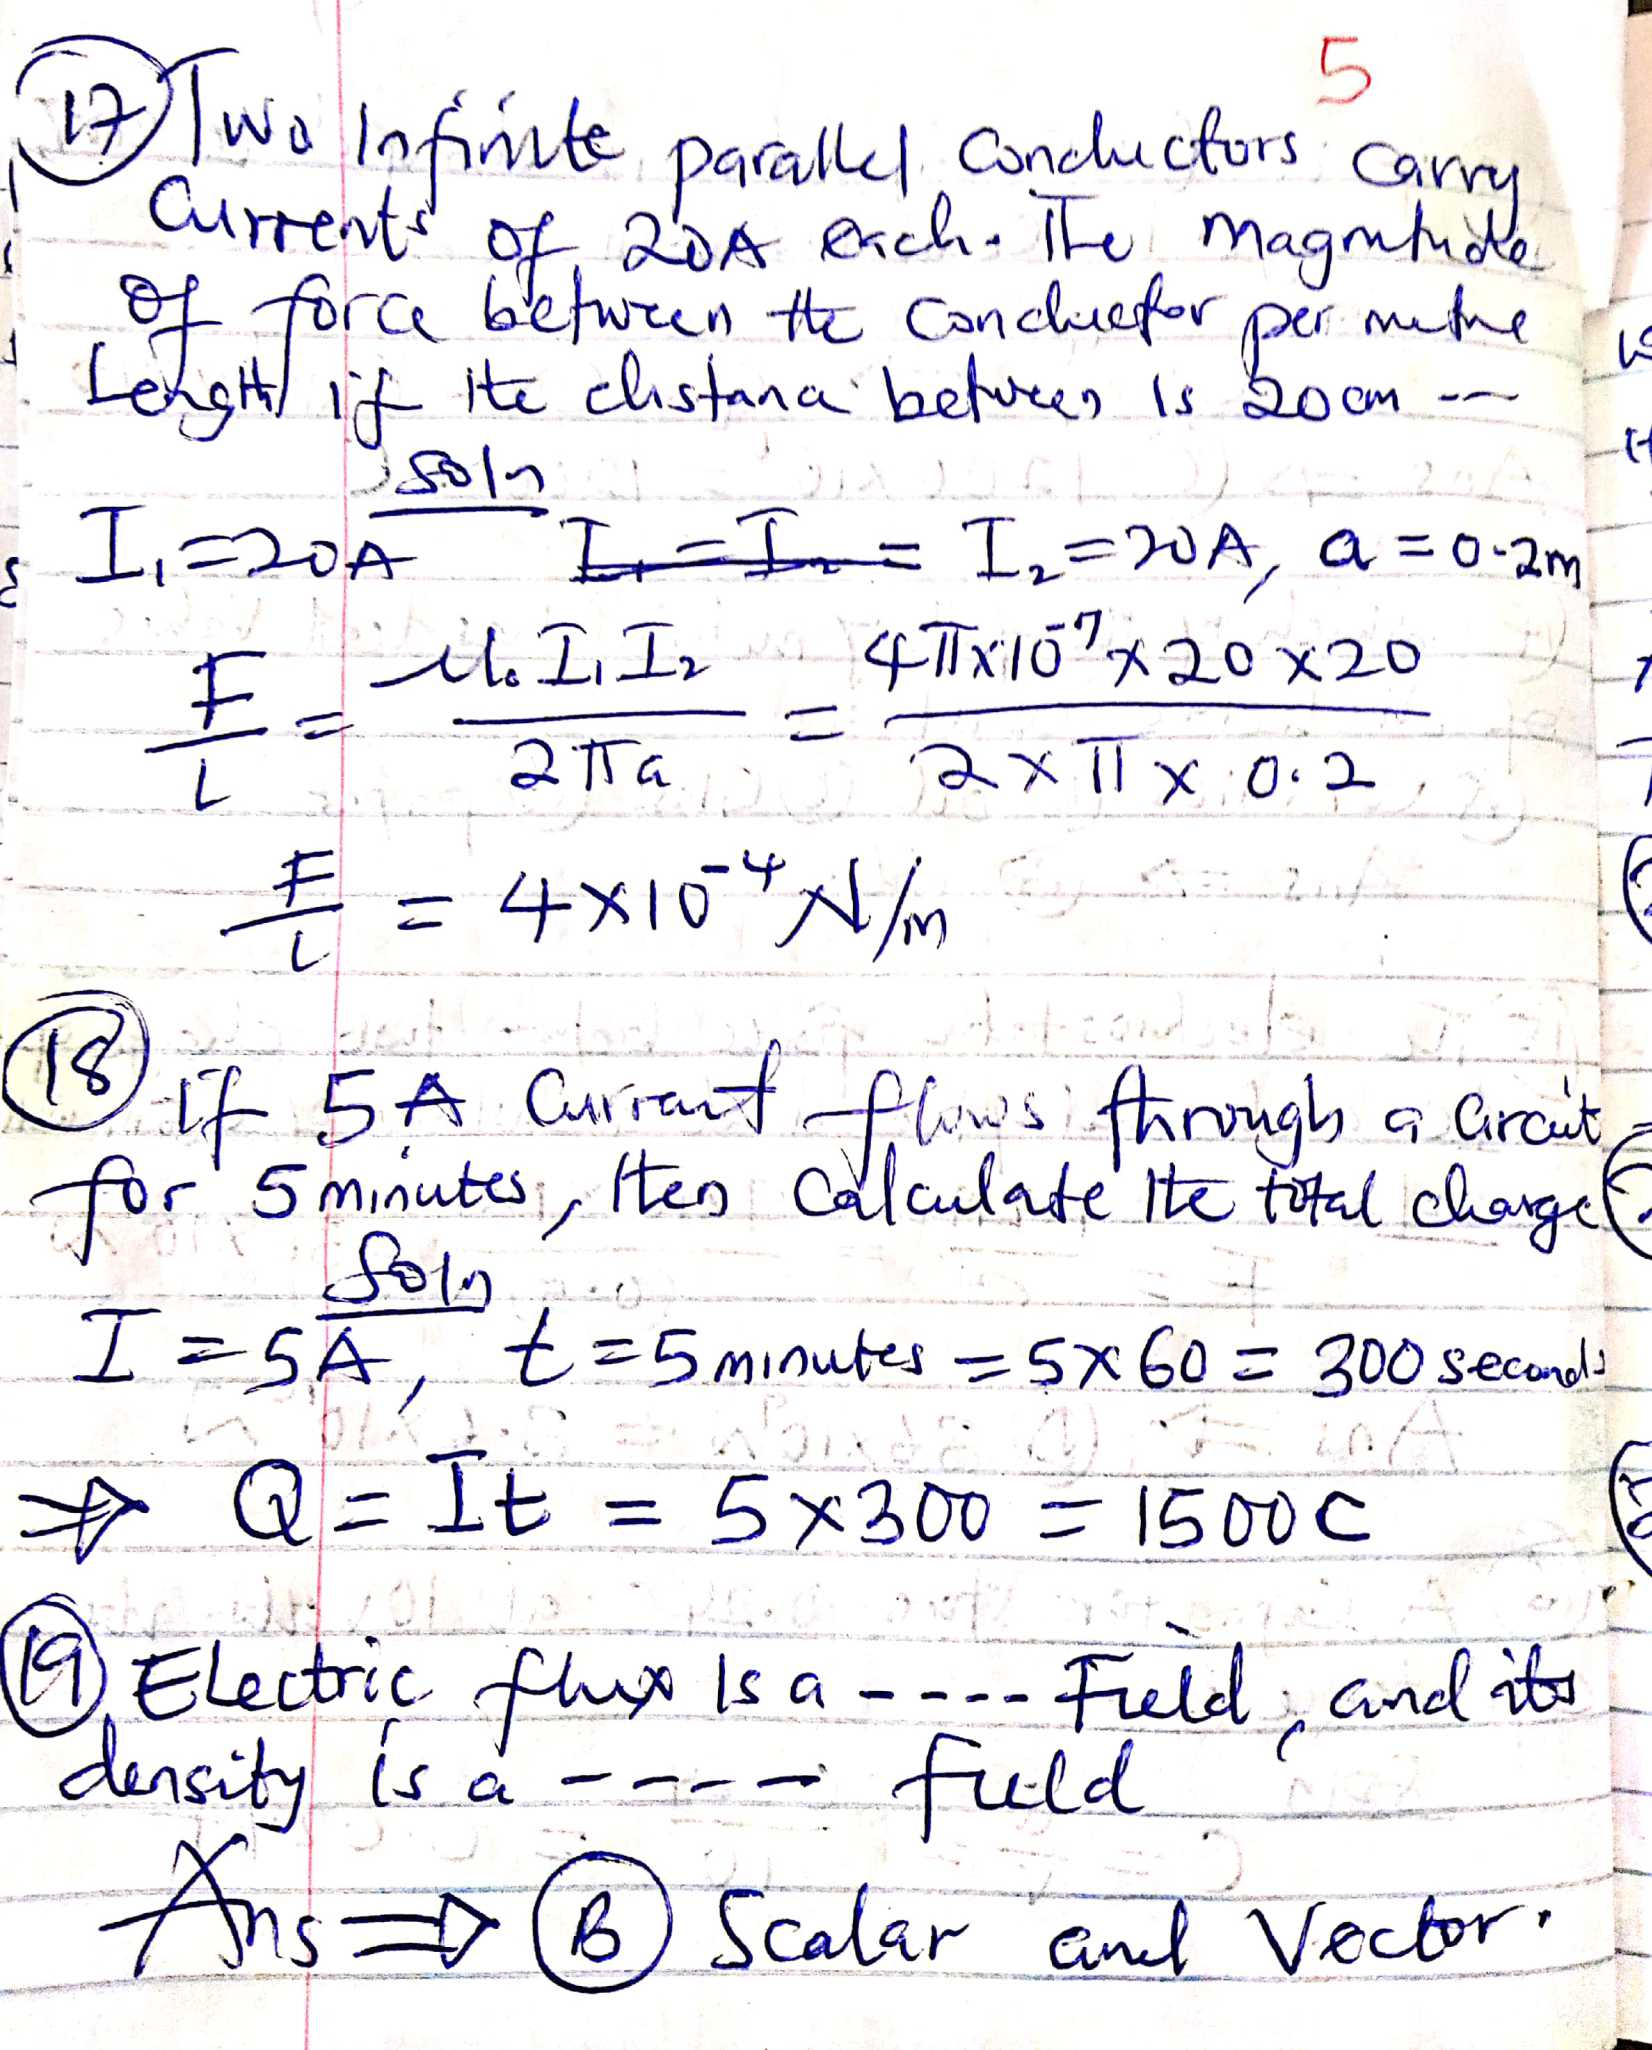 5
17 Two Infinite parallel Conductors carry
Currents of 20A each. The magnitude
of force between the Conductor per metre
Length if the distance between is 20cm --
Soln
I₁ = 20A I₁ = I₂ = I₂ = 20A, a = 0.2m
F/L = μ₀I₁I₂/2πa = 4π×10⁻⁷×20×20/2×π×0.2
F/L = 4×10⁻⁴ N/m
18 if 5A Current flows through a Circuit
for 5 minutes, then Calculate the total charge
Soln
I = 5A, t = 5 minutes = 5×60 = 300 seconds
⇒ Q = It = 5×300 = 1500C
19 Electric flux is a ---- Field, and its
density is a ---- field
Ans ⇒ B Scalar and Vector.